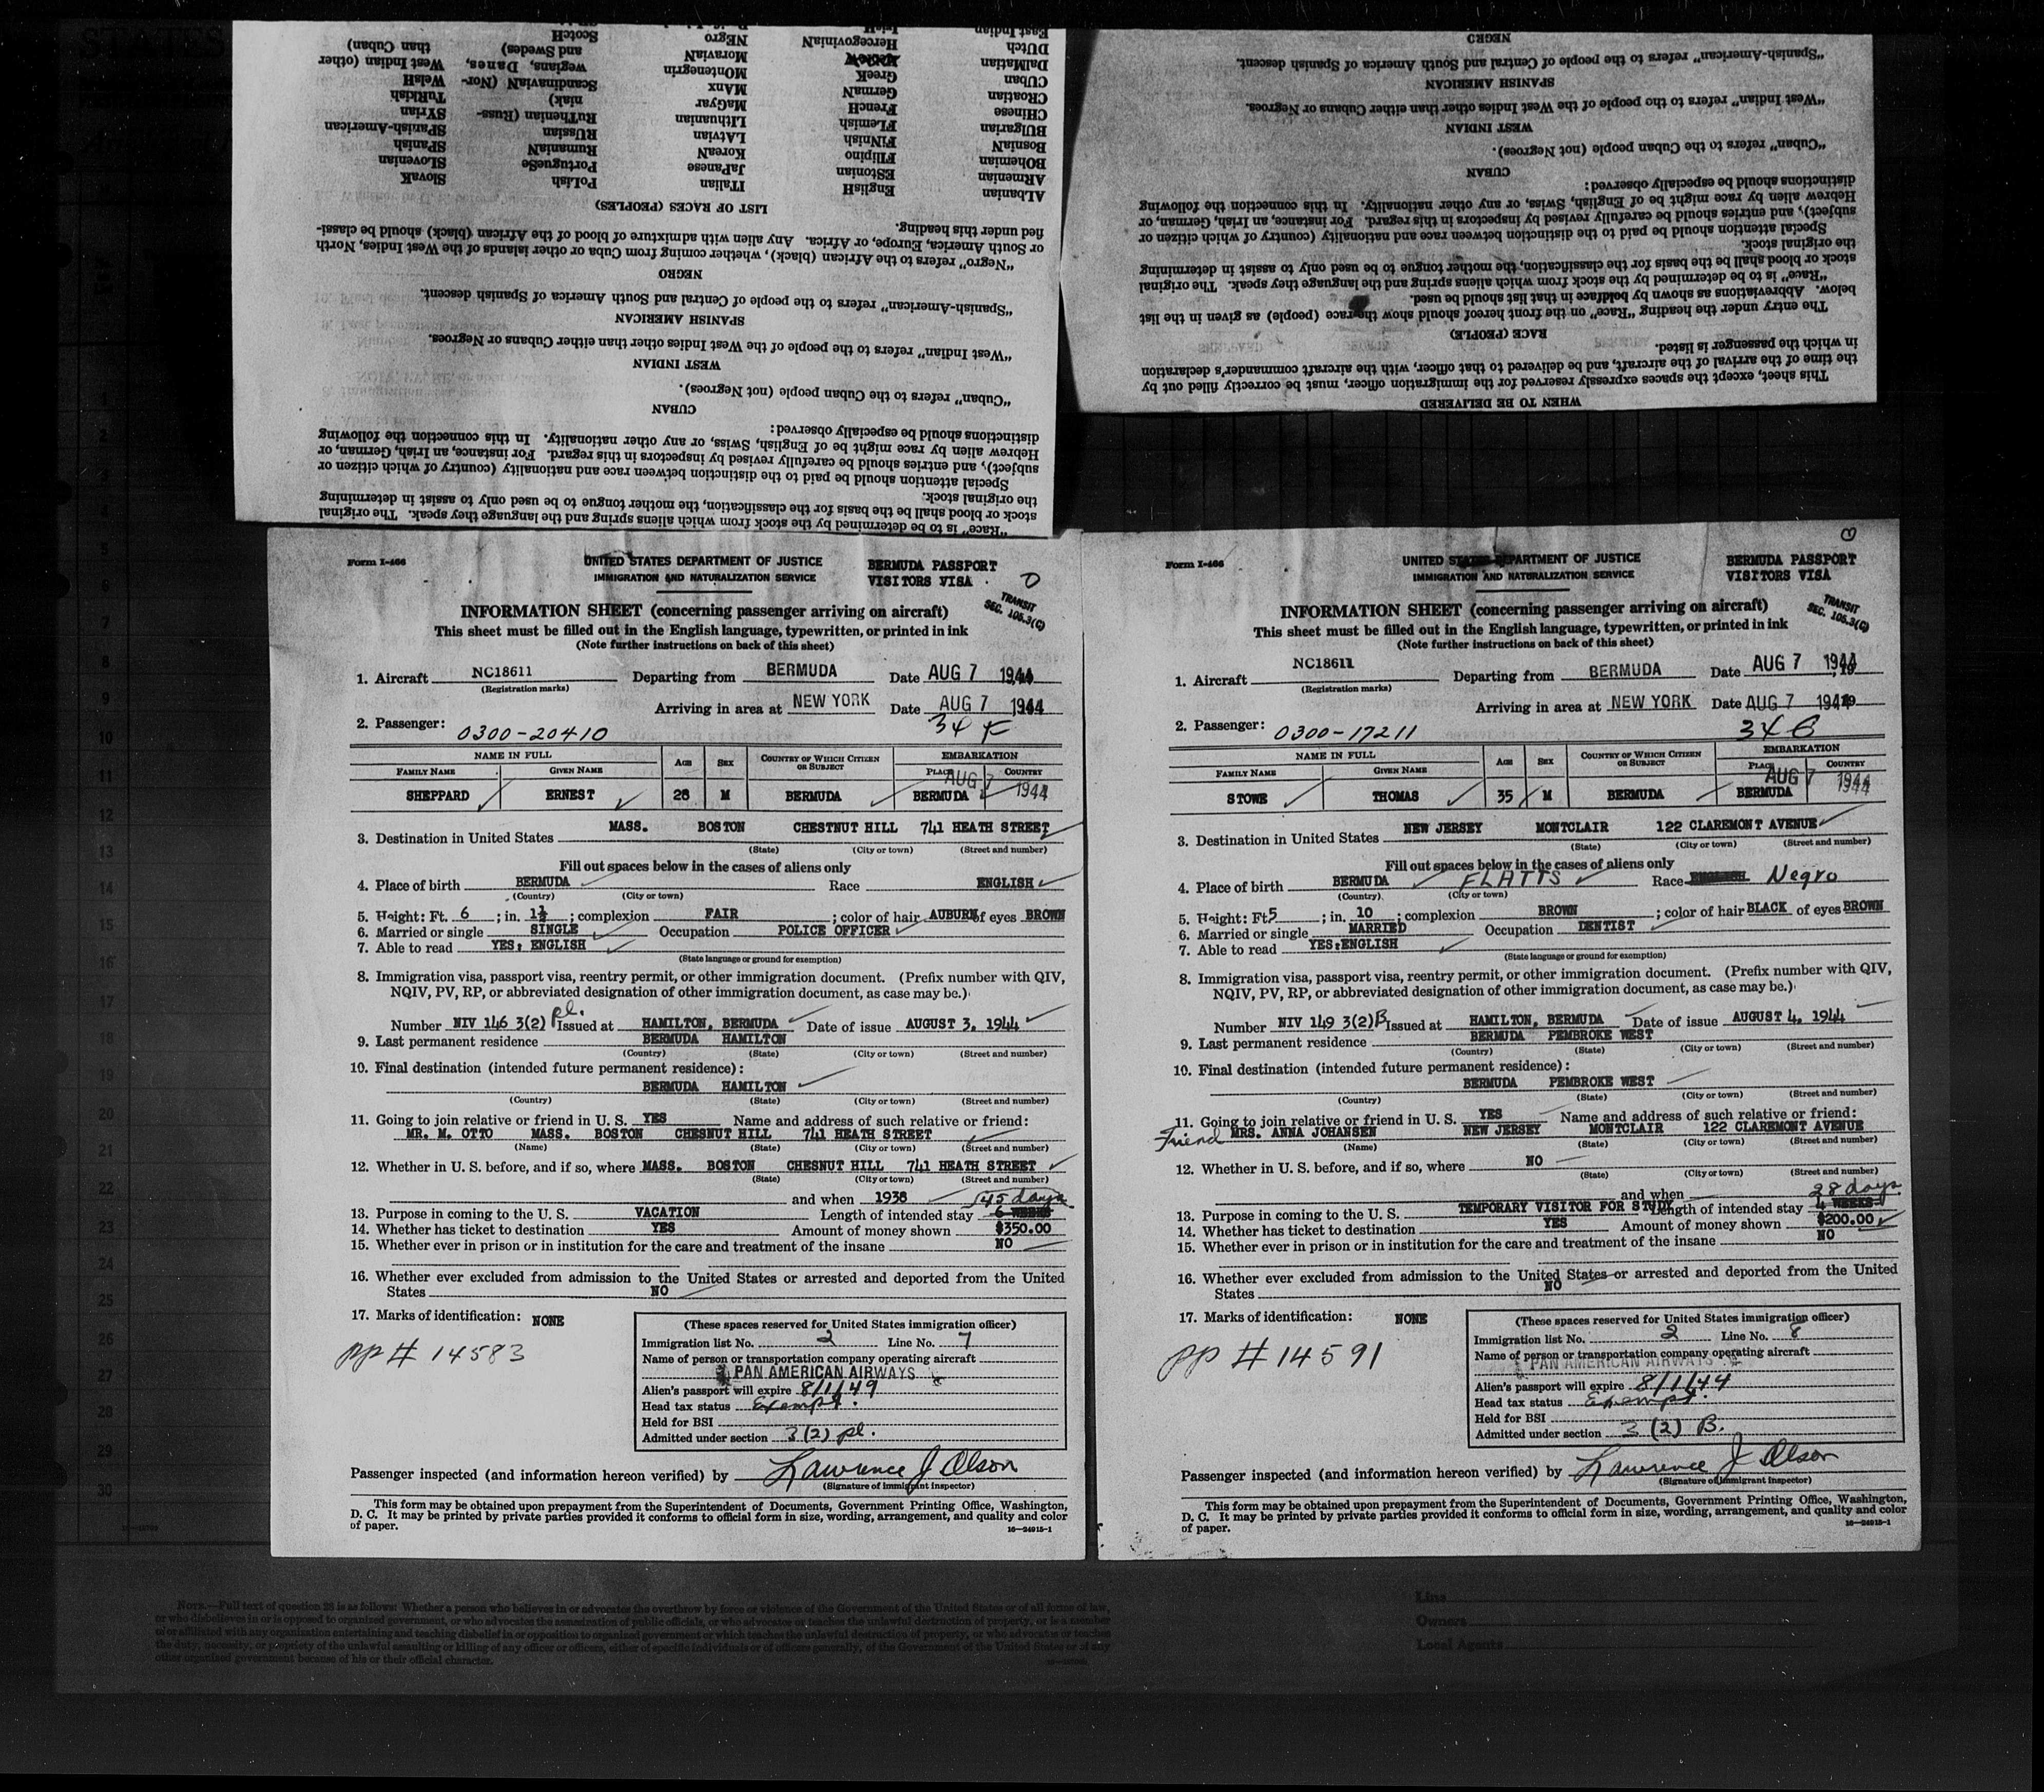 Albanian EnglisH ITalian PoLish SlovaK
ARmenian EStonian JaPanese PortugueSe SLovenian
BOhemian FIlipino KoreaN RumaniaN SPanish
BosniaN FiNNish LAtvian RUssian SPanish-American
BUlgarian FLemish LIthuanian RuThenian (Russ- SYrian
CHinese FrencH MaGyar niak) TuRkish
CRoatian GermaN MAnx ScandinaviaN (Nor- WelsH
CUban GreeK MOntenegrin wegians, Danes, West Indian (other
DalMatian MoraviaN and Swedes) than Cuban)
DUtch HercegoviniaN NEgro ScotcH
East Indian IrisH
LIST OF RACES (PEOPLES)
fied under this heading.
or South America, Europe, or Africa. Any alien with admixture of blood of the African (black) should be classi-
"Negro" refers to the African (black), whether coming from Cuba or other islands of the West Indies, North
NEGRO
"Spanish-American" refers to the people of Central and South America of Spanish descent.
SPANISH AMERICAN
"West Indian" refers to the people of the West Indies other than either Cubans or Negroes.
WEST INDIAN
"Cuban" refers to the Cuban people (not Negroes).
CUBAN
distinctions should be especially observed:
Hebrew alien by race might be of English, Swiss, or any other nationality. In this connection the following
subject), and entries should be carefully revised by inspectors in this regard. For instance, an Irish, German, or
Special attention should be paid to the distinction between race and nationality (country of which citizen or
the original stock.
stock or blood shall be the basis for the classification, the mother tongue to be used only to assist in determining
"Race" is to be determined by the stock from which aliens spring and the language they speak. The original
NEGRO
"Spanish-American" refers to the people of Central and South America of Spanish descent.
SPANISH AMERICAN
"West Indian" refers to the people of the West Indies other than either Cubans or Negroes.
WEST INDIAN
"Cuban" refers to the Cuban people (not Negroes).
CUBAN
distinctions should be especially observed:
Hebrew alien by race might be of English, Swiss, or any other nationality. In this connection the following
subject), and entries should be carefully revised by inspectors in this regard. For instance, an Irish, German, or
Special attention should be paid to the distinction between race and nationality (country of which citizen or
the original stock.
stock or blood shall be the basis for the classification, the mother tongue to be used only to assist in determining
"Race" is to be determined by the stock from which aliens spring and the language they speak. The original
below. Abbreviations as shown by boldface in that list should be used.
The entry under the heading "Race" on the front hereof should show the race (people) as given in the list
RACE (PEOPLE)
in which the passenger is listed.
the time of the arrival of the aircraft, and be delivered to that officer, with the aircraft commander's declaration
This sheet, except the spaces expressly reserved for the immigration officer, must be correctly filled out by
WHEN TO BE DELIVERED
Form I-466 UNITED STATES DEPARTMENT OF JUSTICE BERMUDA PASSPORT
IMMIGRATION AND NATURALIZATION SERVICE VISITORS VISA
TRANSIT
SEC. 105.3(C)
INFORMATION SHEET (concerning passenger arriving on aircraft)
This sheet must be filled out in the English language, typewritten, or printed in ink
(Note further instructions on back of this sheet)
1. Aircraft NC18611 Departing from BERMUDA Date AUG 7 1944
(Registration marks)
Arriving in area at NEW YORK Date AUG 7 1944
2. Passenger: 0300-20410 34 F
NAME IN FULL Age Sex Country of Which Citizen or Subject EMBARKATION
Family Name Given Name Place Country
AUG 7 1944
SHEPPARD ERNEST 28 M BERMUDA BERMUDA
3. Destination in United States MASS. BOSTON CHESTNUT HILL 741 HEATH STREET
(State) (City or town) (Street and number)
Fill out spaces below in the cases of aliens only
4. Place of birth BERMUDA Race ENGLISH
(Country) (City or town)
5. Height: Ft. 6 ; in. 1½ ; complexion FAIR ; color of hair AUBURN of eyes BROWN
6. Married or single SINGLE Occupation POLICE OFFICER
7. Able to read YES; ENGLISH
(State language or ground for exemption)
8. Immigration visa, passport visa, reentry permit, or other immigration document. (Prefix number with QIV,
NQIV, PV, RP, or abbreviated designation of other immigration document, as case may be.)
Number NIV 146 3(2) pl. Issued at HAMILTON, BERMUDA Date of issue AUGUST 3, 1944
9. Last permanent residence BERMUDA HAMILTON
(Country) (State) (City or town) (Street and number)
10. Final destination (intended future permanent residence):
BERMUDA HAMILTON
(Country) (State) (City or town) (Street and number)
11. Going to join relative or friend in U. S. YES Name and address of such relative or friend:
MR. M. OTTO MASS. BOSTON CHESNUT HILL 741 HEATH STREET
(Name) (State) (City or town) (Street and number)
12. Whether in U. S. before, and if so, where MASS. BOSTON CHESNUT HILL 741 HEATH STREET
(State) (City or town) (Street and number)
and when 1938 45 days
13. Purpose in coming to the U. S. VACATION Length of intended stay 6 WEEKS
14. Whether has ticket to destination YES Amount of money shown $350.00
15. Whether ever in prison or in institution for the care and treatment of the insane NO
16. Whether ever excluded from admission to the United States or arrested and deported from the United
States NO
17. Marks of identification: NONE
pp # 14583
(These spaces reserved for United States immigration officer)
Immigration list No. 2 Line No. 7
Name of person or transportation company operating aircraft
PAN AMERICAN AIRWAYS
Alien's passport will expire 8/1/49
Head tax status Exempt.
Held for BSI
Admitted under section 3(2) pl.
Passenger inspected (and information hereon verified) by Lawrence J Olson
(Signature of immigrant inspector)
This form may be obtained upon prepayment from the Superintendent of Documents, Government Printing Office, Washington,
D. C. It may be printed by private parties provided it conforms to official form in size, wording, arrangement, and quality and color
of paper. 16—24915-1
Form I-466 UNITED STATES DEPARTMENT OF JUSTICE BERMUDA PASSPORT
IMMIGRATION AND NATURALIZATION SERVICE VISITORS VISA
TRANSIT
SEC. 105.3(C)
INFORMATION SHEET (concerning passenger arriving on aircraft)
This sheet must be filled out in the English language, typewritten, or printed in ink
(Note further instructions on back of this sheet)
1. Aircraft NC18611 Departing from BERMUDA Date AUG 7 1944
(Registration marks)
Arriving in area at NEW YORK Date AUG 7 1944
2. Passenger: 0300-17211 34 6
NAME IN FULL Age Sex Country of Which Citizen or Subject EMBARKATION
Family Name Given Name Place Country
AUG 7 1944
STOWE THOMAS 35 M BERMUDA BERMUDA
3. Destination in United States NEW JERSEY MONTCLAIR 122 CLAREMONT AVENUE
(State) (City or town) (Street and number)
Fill out spaces below in the cases of aliens only
4. Place of birth BERMUDA FLATTS Race ENGLISH Negro
(Country) (City or town)
5. Height: Ft. 5 ; in. 10 ; complexion BROWN ; color of hair BLACK of eyes BROWN
6. Married or single MARRIED Occupation DENTIST
7. Able to read YES; ENGLISH
(State language or ground for exemption)
8. Immigration visa, passport visa, reentry permit, or other immigration document. (Prefix number with QIV,
NQIV, PV, RP, or abbreviated designation of other immigration document, as case may be.)
Number NIV 149 3(2) B Issued at HAMILTON, BERMUDA Date of issue AUGUST 4, 1944
9. Last permanent residence BERMUDA PEMBROKE WEST
(Country) (State) (City or town) (Street and number)
10. Final destination (intended future permanent residence):
BERMUDA PEMBROKE WEST
(Country) (State) (City or town) (Street and number)
11. Going to join relative or friend in U. S. YES Name and address of such relative or friend:
Friend MRS. ANNA JOHANSEN NEW JERSEY MONTCLAIR 122 CLAREMONT AVENUE
(Name) (State) (City or town) (Street and number)
12. Whether in U. S. before, and if so, where NO
(State) (City or town) (Street and number)
and when 28 days
13. Purpose in coming to the U. S. TEMPORARY VISITOR FOR STUDY Length of intended stay 4 WEEKS
14. Whether has ticket to destination YES Amount of money shown $200.00
15. Whether ever in prison or in institution for the care and treatment of the insane NO
16. Whether ever excluded from admission to the United States or arrested and deported from the United
States NO
17. Marks of identification: NONE
pp # 14591
(These spaces reserved for United States immigration officer)
Immigration list No. 2 Line No. 8
Name of person or transportation company operating aircraft
PAN AMERICAN AIRWAYS
Alien's passport will expire 8/1/44
Head tax status Exempt.
Held for BSI
Admitted under section 3(2) B.
Passenger inspected (and information hereon verified) by Lawrence J Olson
(Signature of immigrant inspector)
This form may be obtained upon prepayment from the Superintendent of Documents, Government Printing Office, Washington,
D. C. It may be printed by private parties provided it conforms to official form in size, wording, arrangement, and quality and color
of paper. 16—24915-1
1
2
3
4
5
6
7
8
9
10
11
12
13
14
15
16
17
18
19
20
21
22
23
24
25
26
27
28
29
30
Note.—Full text of question 28 is as follows: Whether a person who believes in or advocates the overthrow by force or violence of the Government of the United States or of all forms of law,
or who disbelieves in or is opposed to organized government, or who advocates the assassination of public officials, or who advocates or teaches the unlawful destruction of property, or is a member
of or affiliated with any organization entertaining and teaching disbelief in or opposition to organized government or which teaches the unlawful destruction of property, or who advocates or teaches
the duty, necessity, or propriety of the unlawful assaulting or killing of any officer or officers, either of specific individuals or of officers generally, of the Government of the United States or of any
other organized government because of his or their official character.
Line
Owners
Local Agents